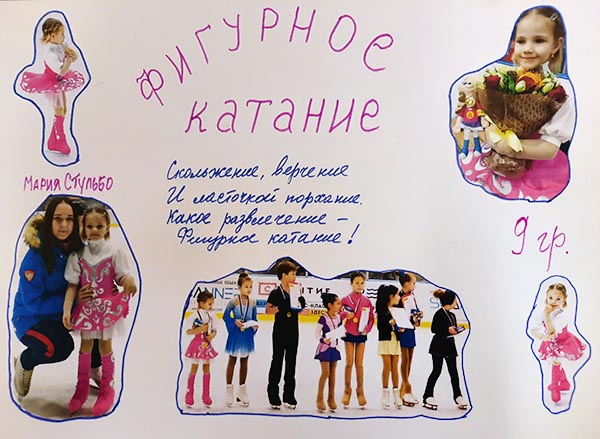 ФИГУРНОЕ
КАТАНИЕ
Скольжение, верчение
И ласточкой порхание.
Какое развлечение –
Фигурное катание!
МАРИЯ СТУЛЬБО
9 гр.